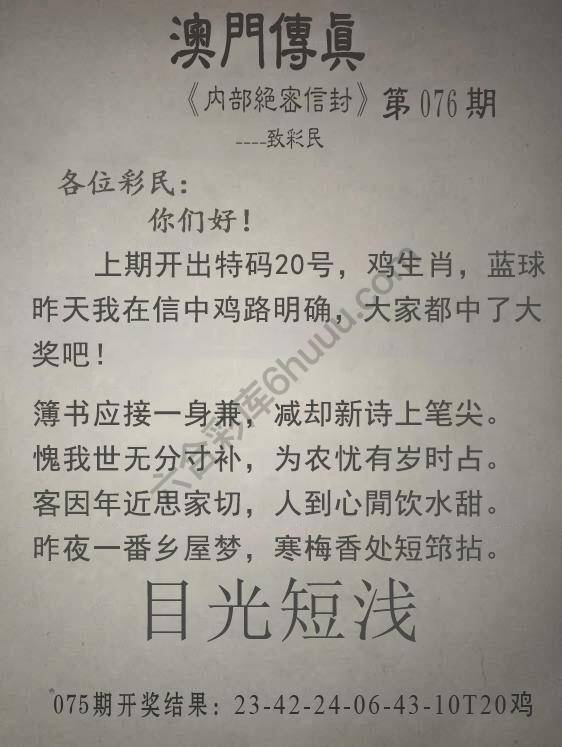 澳門傳真
《内部絕密信封》第076期
----致彩民
各位彩民：
你们好！
上期开出特码20号，鸡生肖，蓝球
昨天我在信中鸡路明确，大家都中了大
奖吧！
簿书应接一身兼，减却新诗上笔尖。
愧我世无分寸补，为农忧有岁时占。
客因年近思家切，人到心閒饮水甜。
昨夜一番乡屋梦，寒梅香处短筇拈。
目光短浅
075期开奖结果：23-42-24-06-43-10T20鸡
六合彩库6huuu.com